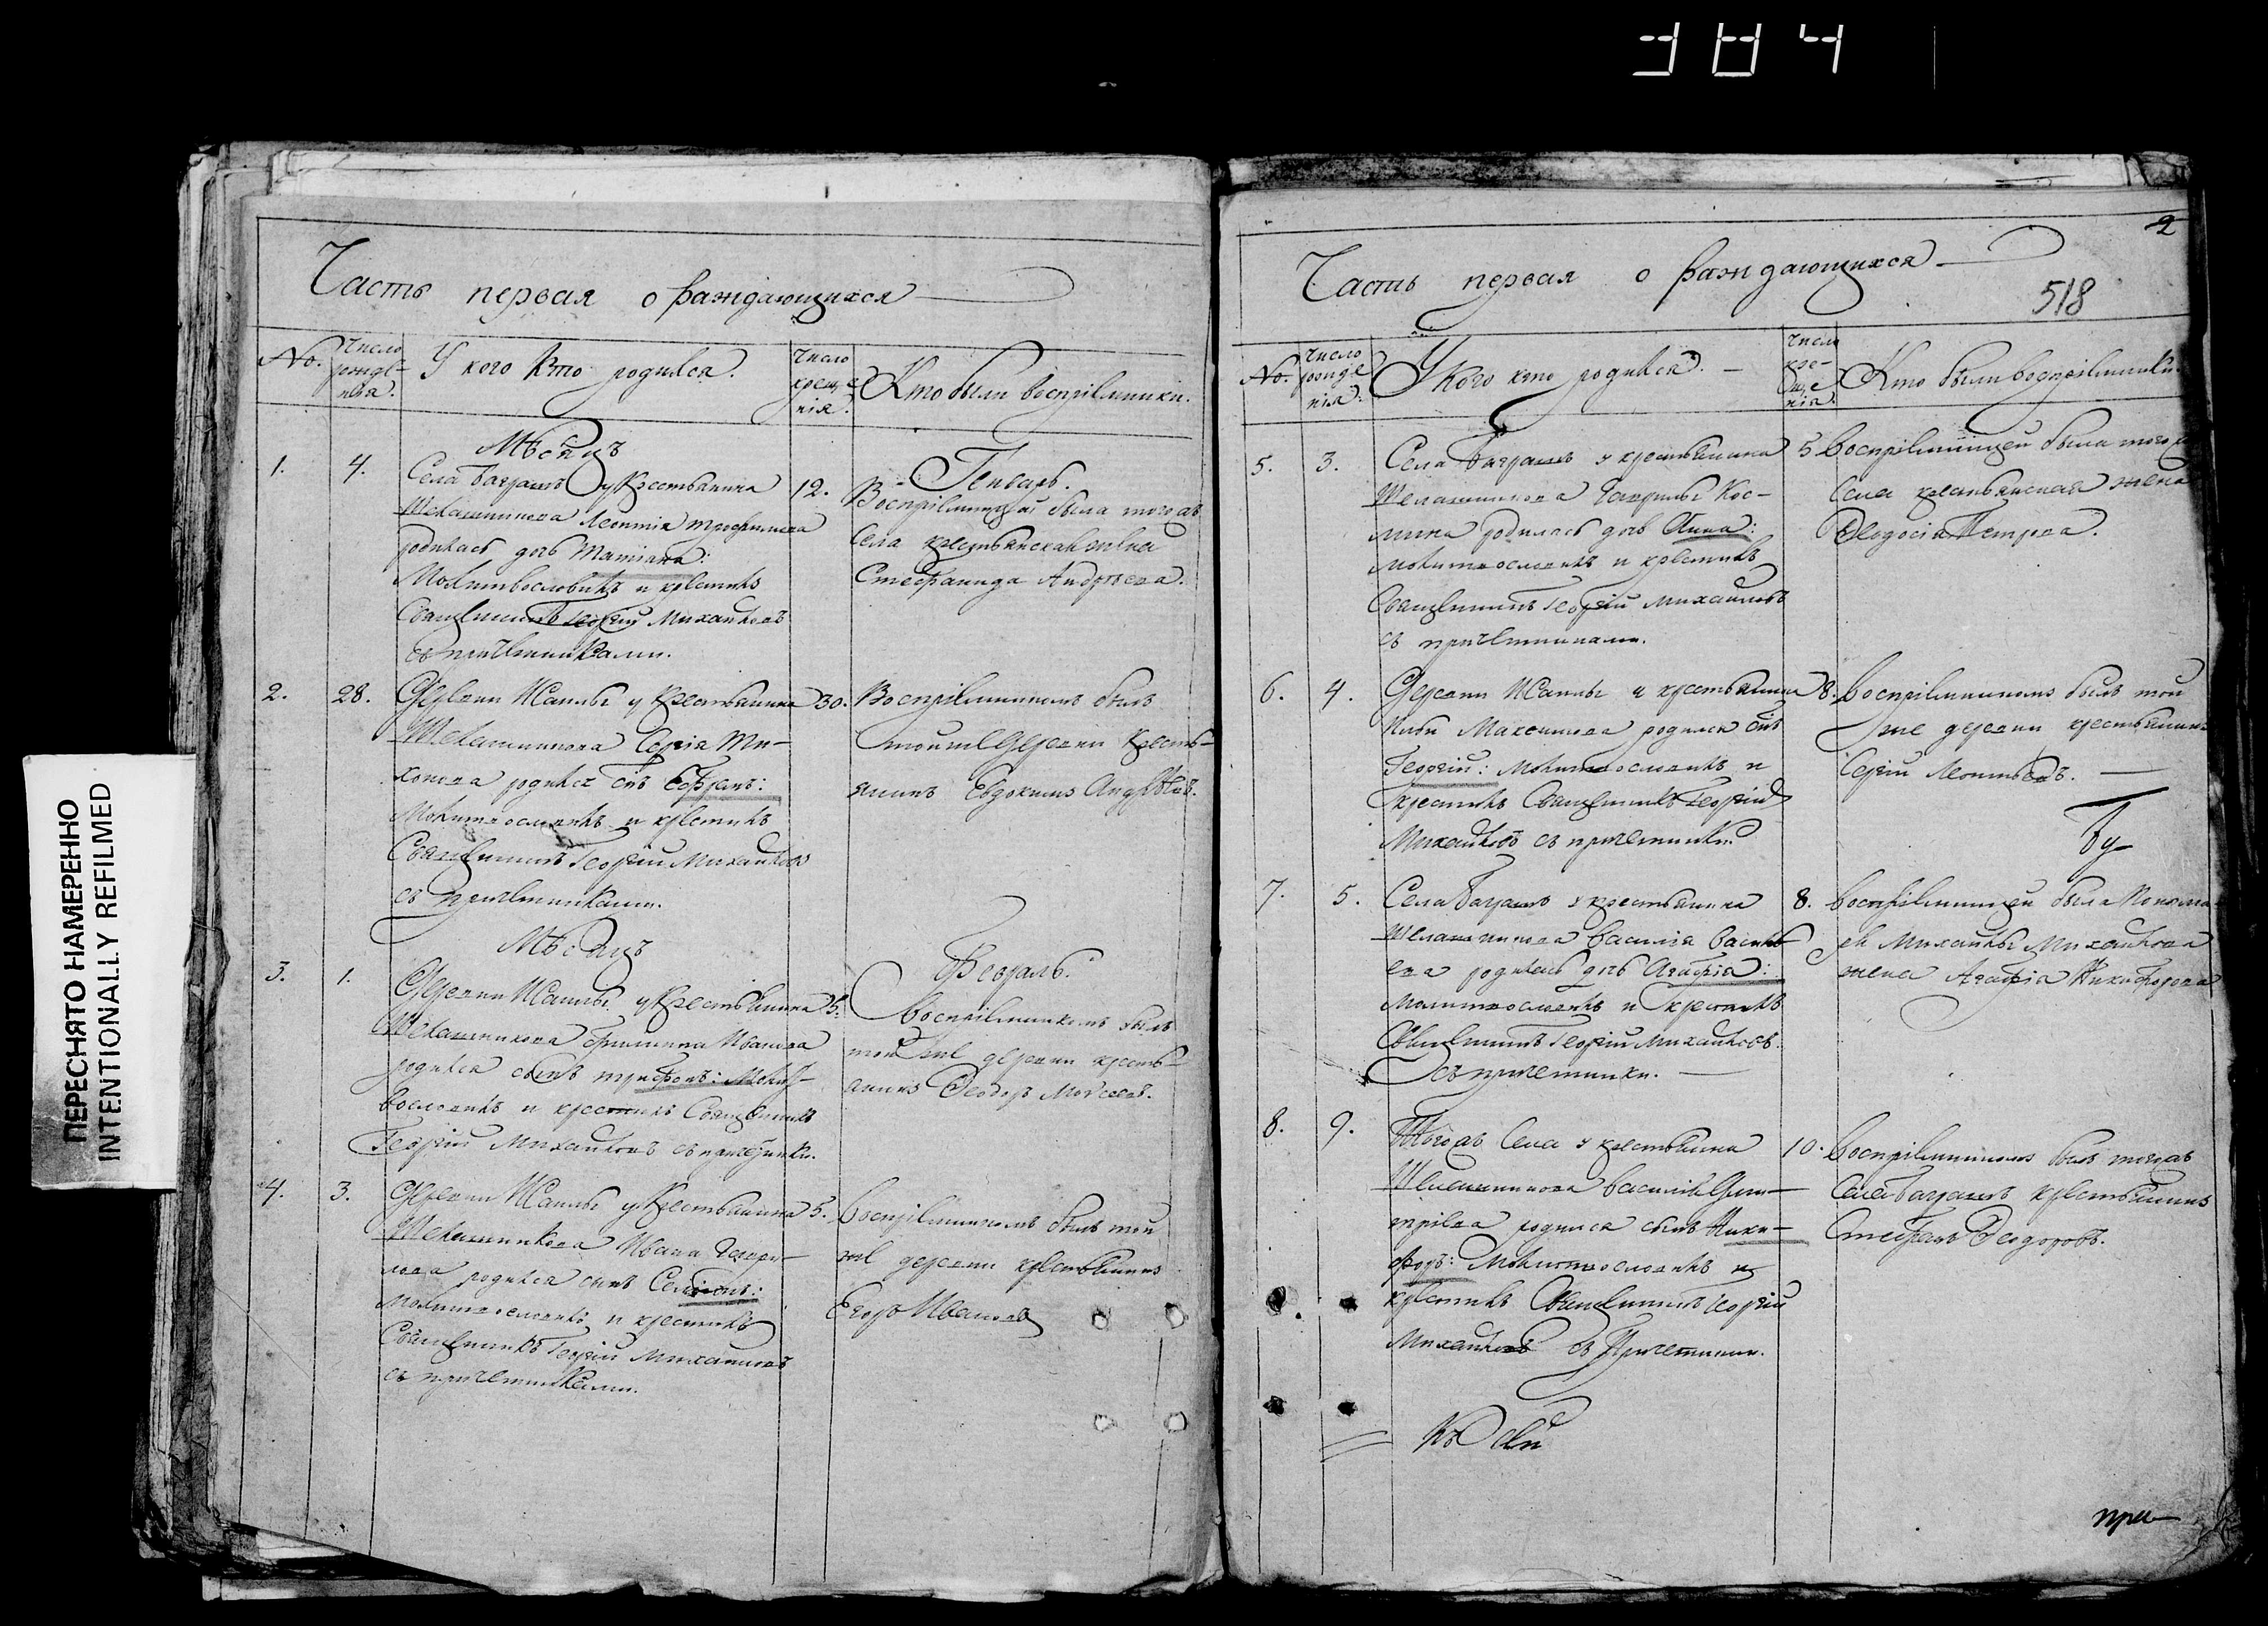 384
ПЕРЕСНЯТО НАМЕРЕННО
INTENTIONALLY REFILMED
Часть первая о раждающихся
No.
Число рожде-нія.
У кого кто родился.
Число креще-нія.
Кто были воспріемники.
Мѣсяцъ
Генварь.
1.
4.
Села Баграшъ у крестьянина
Шелашникова Леонтія Трофимова
родилась дочь Татіана:
Молитвословилъ и крестилъ
Священникъ Георгій Михайловъ
съ причетниками.
12.
Воспріемницей была тогожъ
Села крестьянская жена
Стефанида Андреева.
2.
28.
Деревни Исаклы у крестьянина
Шелашникова Сергія Ти-
хонова родился сынъ Ефремъ:
Молитвословилъ и крестилъ
Священникъ Георгій Михайловъ
съ причетниками.
30.
Воспріемникомъ былъ
тойже деревни кресть-
янинъ Евдокимъ Андреевъ.
Мѣсяцъ
Февраль.
3.
1.
Деревни Исаклы у крестьянина
Шелашникова Филиппа Иванова
родился сынъ Трифонъ: Молит-
вословилъ и крестилъ Священникъ
Георгій Михайловъ съ причетники.
5.
Воспріемникомъ былъ
той же деревни кресть-
янинъ Феодоръ Моисеевъ.
4.
3.
Деревни Исаклы у крестьянина
Шелашникова Ивана Гаври-
лова родился сынъ Семіонъ:
Молитвословилъ и крестилъ
Священникъ Георгій Михайловъ
съ причетниками.
5.
Воспріемникомъ былъ той
же деревни крестьянинъ
Егоръ Ивановъ
2
Часть первая о раждающихся
518
No.
Число рожде нія.
У кого кто родился.
Число кре-ще нія.
Кто были воспріемники.
5.
3.
Села Баграшъ у крестьянина
Шелашникова Гаврилы Кос-
мина родилась дочь Анна:
Молитвословилъ и крестилъ
Священникъ Георгій Михайловъ
съ причетниками.
5
Воспріемницей была тогожъ
Села крестьянская жена
Феодосія Петрова.
6.
4.
Деревни Исаклы у крестьянина
Максимова родился сынъ
Георгій: Молитвословилъ и
крестилъ Священникъ Георгій
Михайловъ съ причетники.
8.
Воспріемникомъ былъ той
же деревни крестьянинъ
Сергій Леонтьевъ.
Бу
7.
5.
Села Баграшъ у крестьянина
Шелашникова Василія Василь
ева родилась дочь Агафія:
Молитвословилъ и крестилъ
Священникъ Георгій Михайловъ.
съ причетники.
8.
Воспріемницей была Понома-
ря Михайлы Михайлова
жена Агафія Никифорова
8.
9.
Тогожъ Села у крестьянина
Шелашникова Василія Дми-
тріева родился сынъ Ники-
форъ: Молитвословилъ и
крестилъ Священникъ Георгій
Михайловъ съ Причетники.
10.
Воспріемникомъ былъ тогожъ
Села Баграшъ крестьянинъ
Стефанъ Феодоровъ.
Къ сей
при